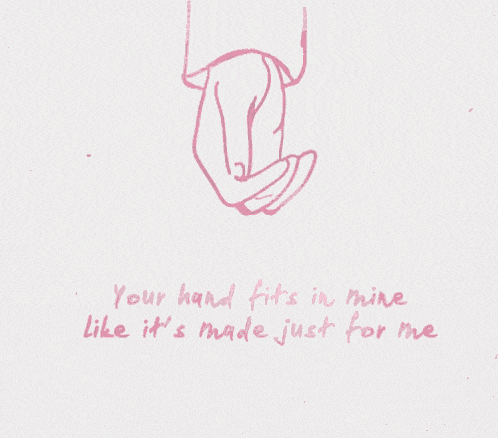 Your hand fits in mine
like it's made just for me